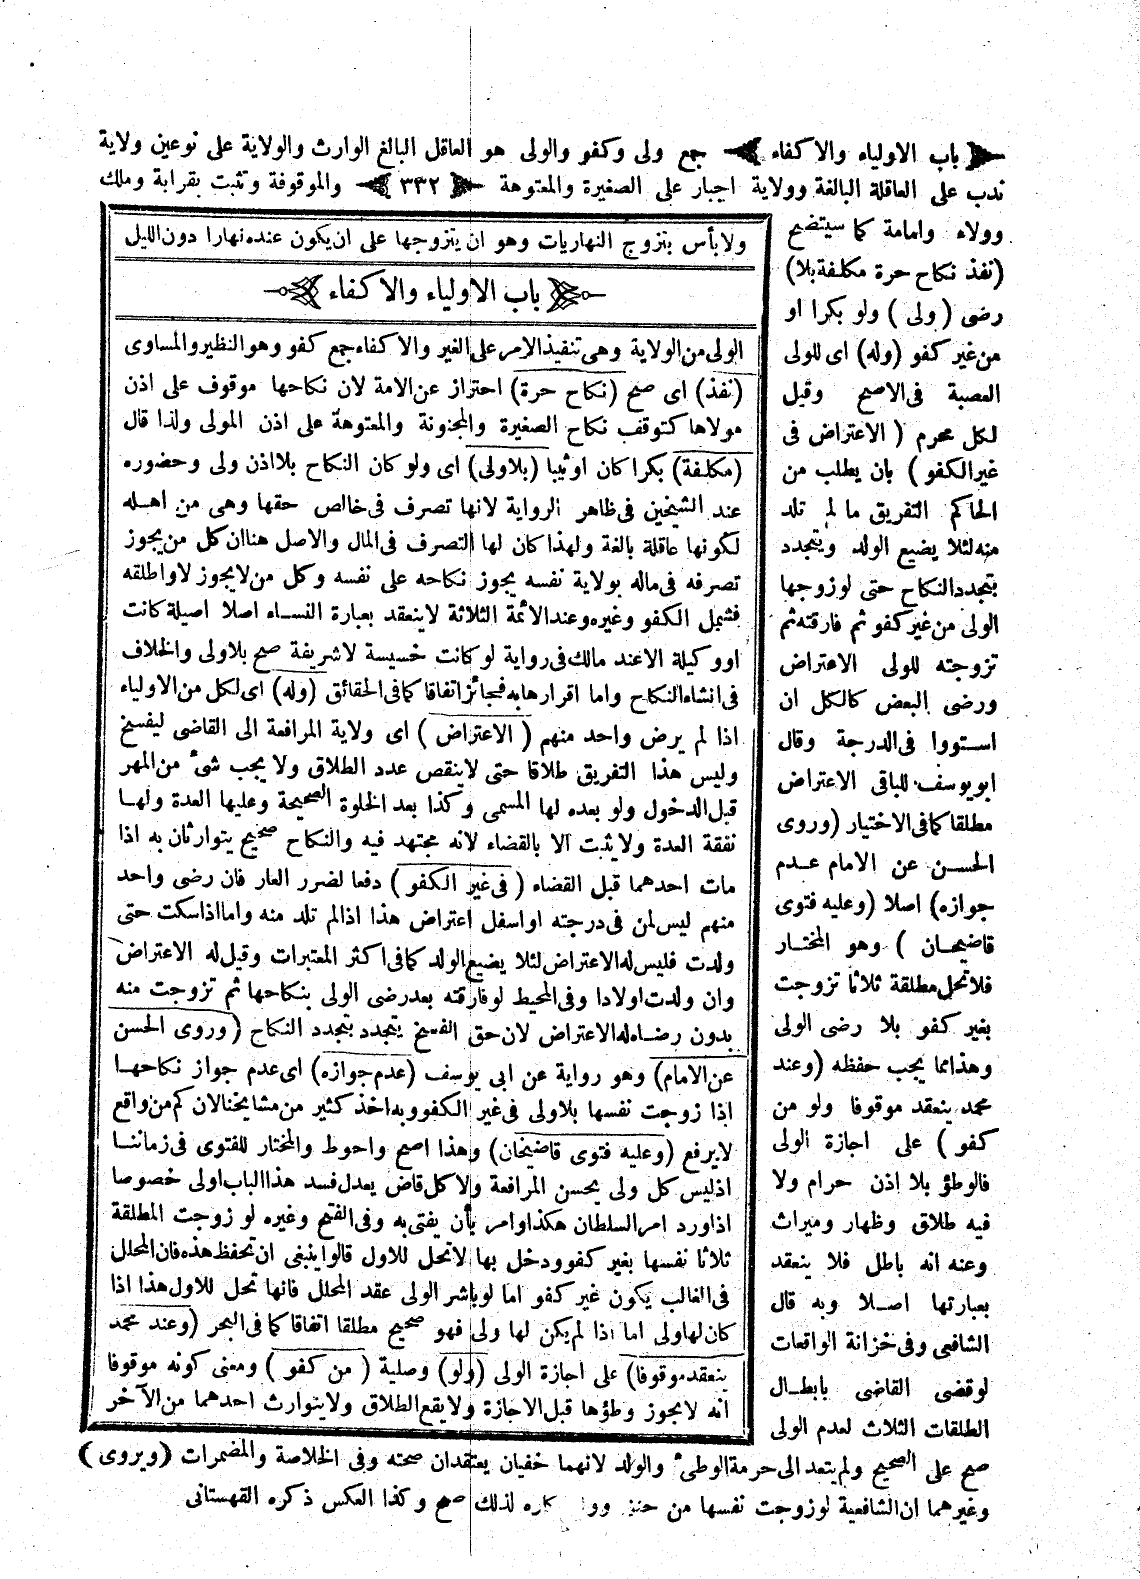 باب الاولياء والاكفاء جمع ولى وكفو والولى هو العاقل البالغ الوارث والولاية على نوعين ولاية
ندب على العاقلة البالغة وولاية اجبار على الصغيرة والمعتوهة ٣٣٢ والموقوفة وتثبت بقرابة وملك
وولاء وامامة كما سيتضح
(نفذ نكاح حرة مكلفة بلا)
رضى (ولى) ولو بكرا او
من غير كفو (وله) اى للولى
العصبة فى الاصح وقيل
لكل محرم (الاعتراض فى
غير الكفو) بان يطلب من
الحاكم التفريق ما لم تلد
منه لئلا يضيع الولد ويتجدد
بتجدد النكاح حتى لو زوجها
الولى من غير كفو ثم فارقته ثم
تزوجته للولى الاعتراض
ورضى البعض كالكل ان
استووا فى الدرجة وقال
ابو يوسف للباقى الاعتراض
مطلقا كما فى الاختيار (وروى
الحسن عن الامام عدم
جوازه) اصلا (وعليه فتوى
قاضيخان) وهو المختار
فلا تحل مطلقة ثلاثا تزوجت
بغير كفو بلا رضى الولى
وهذا مما يجب حفظه (وعند
محمد ينعقد موقوفا ولو من
كفو) على اجازة الولى
فالوطؤ بلا اذن حرام ولا
فيه طلاق وظهار وميراث
وعنه انه باطل فلا ينعقد
بعبارتها اصلا وبه قال
الشافعى وفى خزانة الواقعات
لو قضى القاضى بابطال
الطلقات الثلاث لعدم الولى
ولا بأس بتزوج النهاريات وهو ان يتزوجها على ان يكون عنده نهارا دون الليل
باب الاولياء والاكفاء
الولى من الولاية وهى تنفيذ الامر على الغير والاكفاء جمع كفو وهو النظير والمساوى
(نفذ) اى صح (نكاح حرة) احتراز عن الامة لان نكاحها موقوف على اذن
مولاها كتوقف نكاح الصغيرة والمجنونة والمعتوهة على اذن المولى ولذا قال
(مكلفة) بكرا كان او ثيبا (بلا ولى) اى ولو كان النكاح بلا اذن ولى وحضوره
عند الشيخين فى ظاهر الرواية لانها تصرف فى خالص حقها وهى من اهله
لكونها عاقلة بالغة ولهذا كان لها التصرف فى المال والاصل هنا ان كل من يجوز
تصرفه فى ماله بولاية نفسه يجوز نكاحه على نفسه وكل من لا يجوز لا واطلقه
فشمل الكفو وغيره وعند الائمة الثلاثة لا ينعقد بعبارة النساء اصلا اصيلة كانت
او وكيلة الا عند مالك فى رواية لو كانت خسيسة لا شريفة صح بلا ولى والخلاف
فى انشاء النكاح واما اقرارها به فجائز اتفاقا كما فى الحقائق (وله) اى لكل من الاولياء
اذا لم يرض واحد منهم (الاعتراض) اى ولاية المرافعة الى القاضى ليفسخ
وليس هذا التفريق طلاقا حتى لا ينقص عدد الطلاق ولا يجب شئ من المهر
قبل الدخول ولو بعده لها المسمى وكذا بعد الخلوة الصحيحة وعليها العدة ولها
نفقة العدة ولا يثبت الا بالقضاء لانه مجتهد فيه والنكاح صحيح يتوارثان به اذا
مات احدهما قبل القضاء (فى غير الكفو) دفعا لضرر العار فان رضى واحد
منهم ليس لمن فى درجته او اسفل اعتراض هذا اذا لم تلد منه واما اذا سكت حتى
ولدت فليس له الاعتراض لئلا يضيع الولد كما فى اكثر المعتبرات وقيل له الاعتراض
وان ولدت اولادا وفى المحيط لو فارقته بعد رضى الولى بنكاحها ثم تزوجت منه
بدون رضاه له الاعتراض لان حق الفسخ يتجدد بتجدد النكاح (وروى الحسن
عن الامام) وهو رواية عن ابى يوسف (عدم جوازه) اى عدم جواز نكاحها
اذا زوجت نفسها بلا ولى فى غير الكفو وبه اخذ كثير من مشايخنا لان كم من واقع
لا يرفع (وعليه فتوى قاضيخان) وهذا اصح واحوط والمختار للفتوى فى زماننا
اذ ليس كل ولى يحسن المرافعة ولا كل قاض يعدل فسد هذا الباب اولى خصوصا
اذا ورد امر السلطان هكذا وامر بأن يفتى به وفى الفتح وغيره لو زوجت المطلقة
ثلاثا نفسها بغير كفو ودخل بها لا تحل للاول قالوا ينبغى ان تحفظ هذه فان المحلل
فى الغالب يكون غير كفو اما لو باشر الولى عقد المحلل فانها تحل للاول هذا اذا
كان لها ولى اما اذا لم يكن لها ولى فهو صحيح مطلقا اتفاقا كما فى البحر (وعند محمد
ينعقد موقوفا) على اجازة الولى (ولو) وصلية (من كفو) ومعنى كونه موقوفا
انه لا يجوز وطؤها قبل الاجازة ولا يقع الطلاق ولا يتوارث احدهما من الآخر
صح على الصحيح ولم يتعد الى حرمة الوطئ والولد لانهما خفيان يعتقدان صحته وفى الخلاصة والمضمرات (ويروى)
وغيرهما ان الشافعية لو زوجت نفسها من كاره لذلك صح وكذا العكس ذكره القهستانى